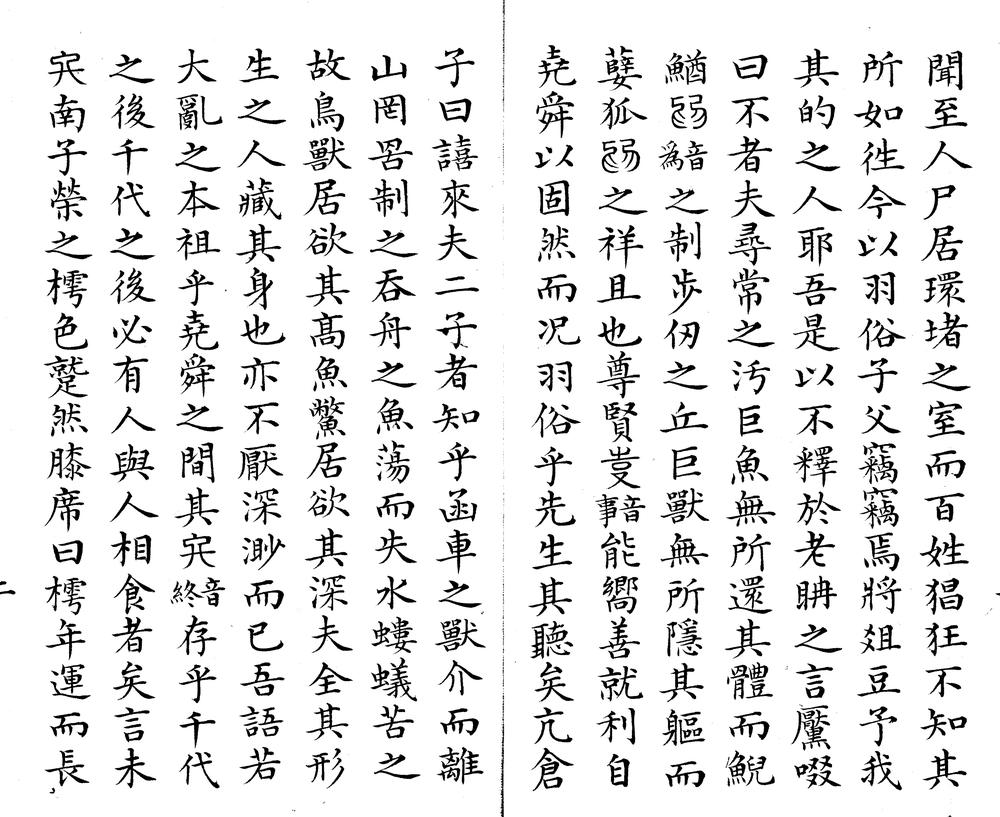 聞至人尸居環堵之室而百姓猖狂不知其
所如徃今以羽俗子父竊竊焉將俎豆予我
其的之人耶吾是以不釋於老聃之言啜
曰不者夫尋常之汚巨魚無所還其體而鯢
鰌音爲之制步仞之丘巨獸無所隱其軀而
孽狐之祥且也尊賢音事能嚮善就利自
堯舜以固然而况羽俗乎先生其聽矣亢倉
子曰譆來夫二子者知乎函車之獸介而離
山罔罟制之吞舟之魚蕩而失水螻蟻苦之
故鳥獸居欲其髙魚鱉居欲其深夫全其形
生之人藏其身也亦不厭深渺而已吾語若
大亂之本祖乎堯舜之間其音終存乎千代
之後千代之後必有人與人相食者矣言未
南子榮之樗色蹵然膝席曰樗年運而長